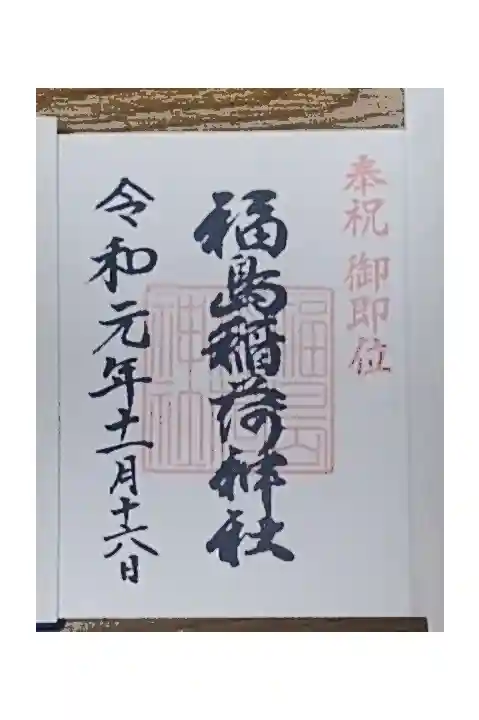 奉祝 御即位
福島稲荷神社
令和元年十一月十六日